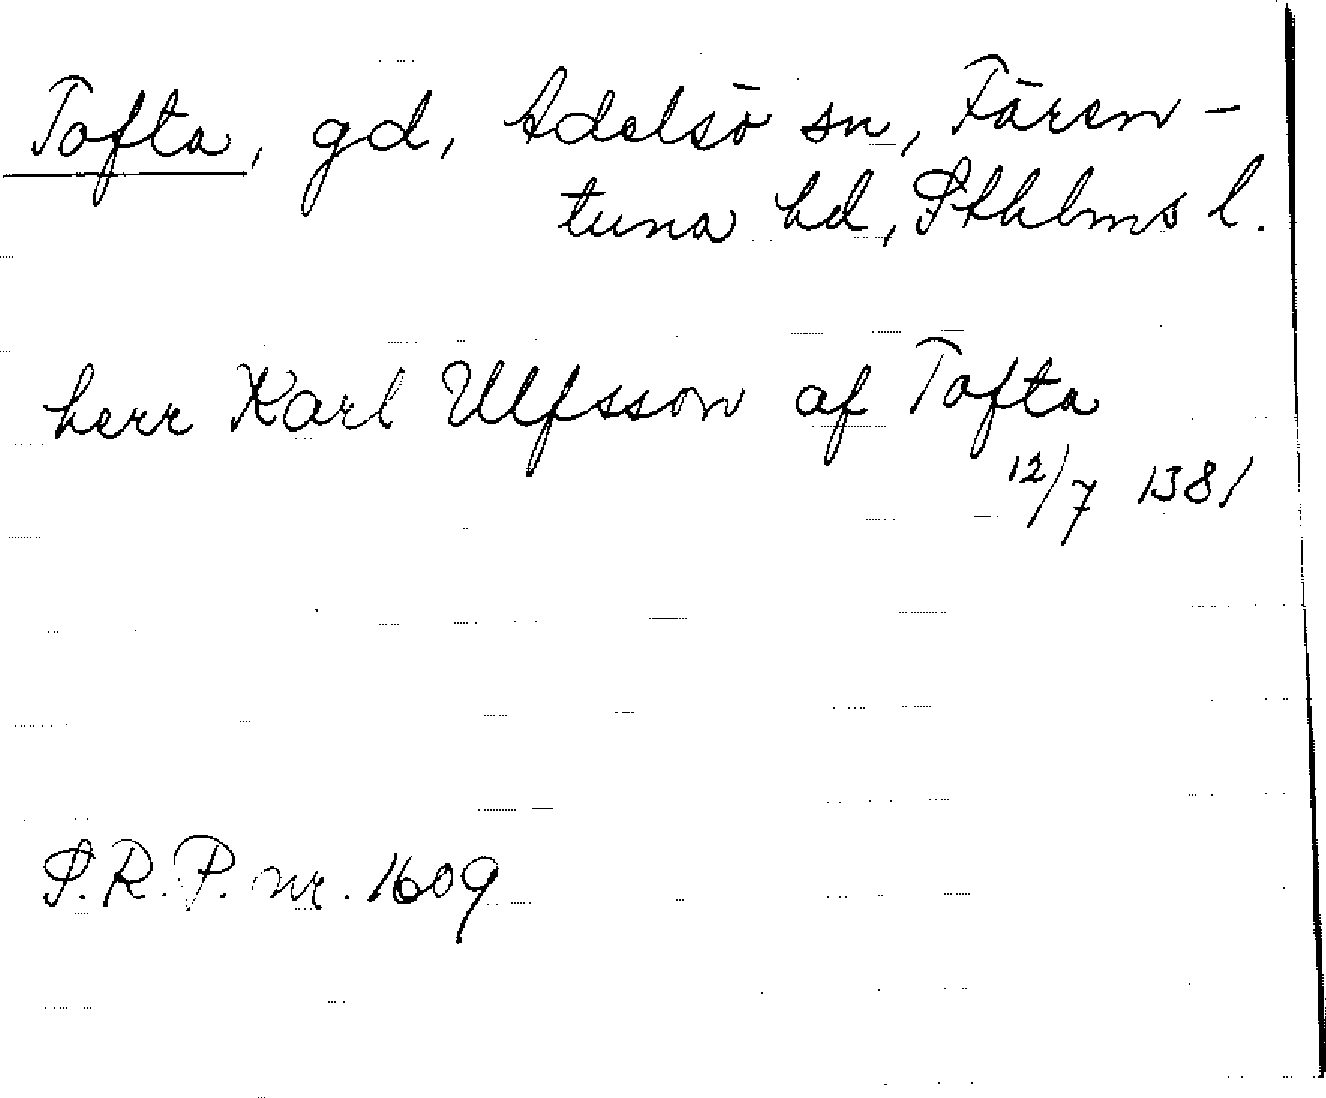 Tofta, gd, Adelsö sn, Fären-
tuna hd, Sthlms l.
herr Karl Ulfsson af Tofta
12/7 1381
S.R.P. nr. 1609